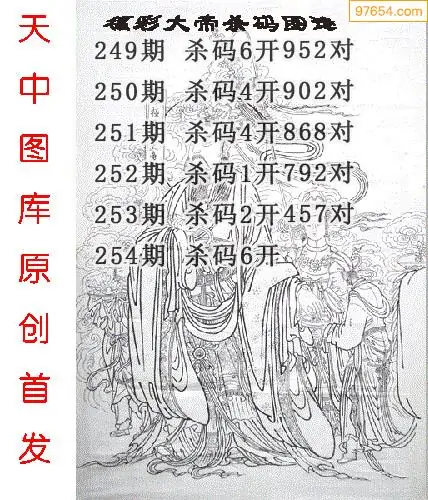 97654.com
彩大帝杀码图
249期 杀码6开952对
250期 杀码4开902对
251期 杀码4开868对
252期 杀码1开792对
253期 杀码2开457对
254期 杀码6开
天中图库原创首发